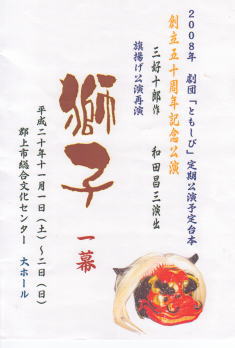 2008年 劇団「ともしび」定期公演予定台本
創立五十周年記念公演
三好十郎作 和田昌三演出
旗揚げ公演再演
獅子
一幕
平成二十年十一月一日(土)~二日(日)
郡上市総合文化センター 大ホール